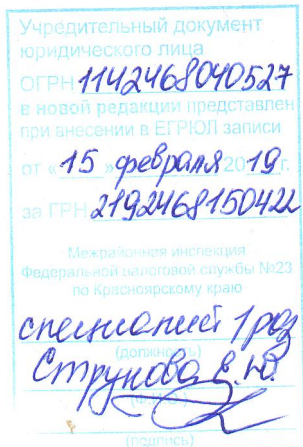 Учредительный документ
юридического лица
ОГРН 1142468040527
в новой редакции представлен
при внесении в ЕГРЮЛ записи
от «15» февраля 2019г.
за ГРН 2192468150422
Межрайонная инспекция
Федеральной налоговой службы №23
по Красноярскому краю
специалист 1 раз
(должность)
Струкова Е.Ю.
(подпись)